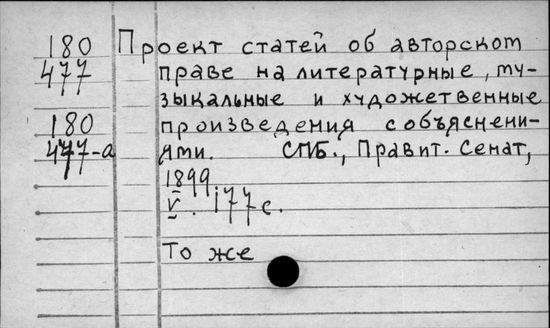 180 Проект статей об авторском
477 праве на литературные, му-
зыкальные и художественные
180 произведения с объяснени-
477-а ями. СПБ., Правит. Сенат,
1899.
V. 177 с.
То же